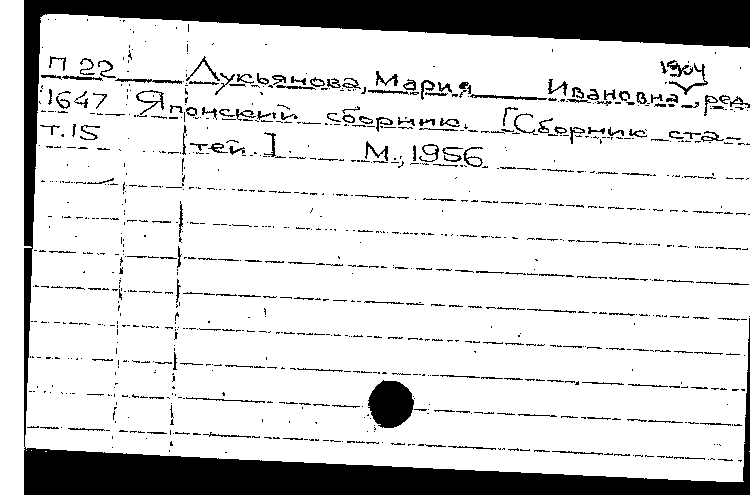 1904
П 22 Лукьянова, Мария Ивановна, ред.
1647 Японский сборник. [Сборник ста-
т.15 тей.] М., 1956